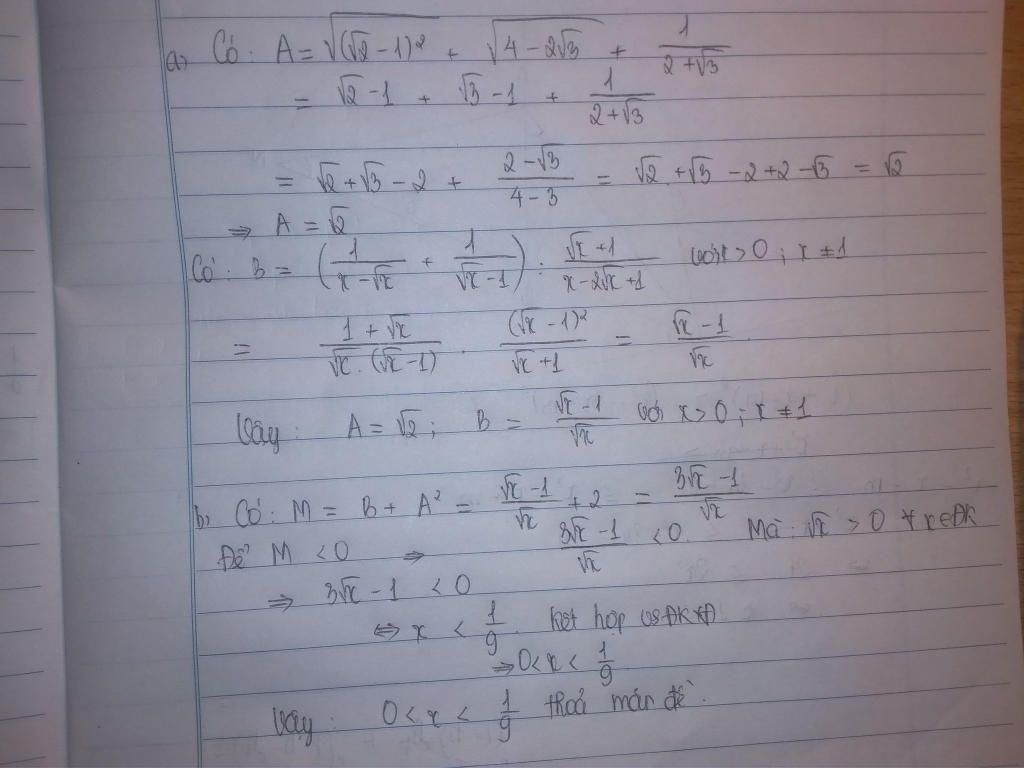 a, Có: A = √(√2 - 1)² + √4 - 2√3 + 1/(2 + √3)
= √2 - 1 + √3 - 1 + 1/(2 + √3)
= √2 + √3 - 2 + (2 - √3)/(4 - 3) = √2 + √3 - 2 + 2 - √3 = √2
⇒ A = √2
Có: B = (1/(x - √x) + 1/(√x - 1)) : (√x + 1)/(x - 2√x + 1) với x > 0 ; x ≠ 1
= (1 + √x)/(√x . (√x - 1)) . (√x - 1)²/(√x + 1) = (√x - 1)/√x
Vậy: A = √2 ; B = (√x - 1)/√x với x > 0 ; x ≠ 1
b, Có: M = B + A² = (√x - 1)/√x + 2 = (3√x - 1)/√x
Để M < 0 ⇒ (3√x - 1)/√x < 0 Mà: √x > 0 ∀ x ∈ ĐK
⇒ 3√x - 1 < 0
⇔ x < 1/9 kết hợp với ĐKXĐ
⇒ 0 < x < 1/9
Vậy: 0 < x < 1/9 thoả mãn đề.